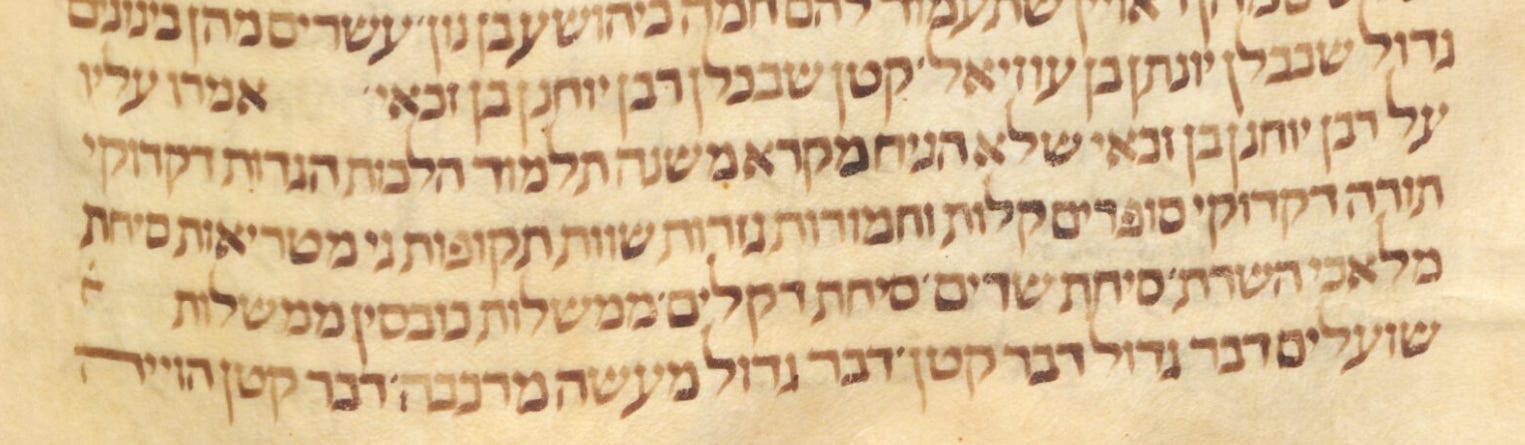 שתעמוד להם חמה כיהושע בן נון׳ עשרים מהן בינונים
גדול שבכלן יונתן בן עוזיאל׳ קטן שבכלן רבן יוחנן בן זכאי׳ אמרו עליו
על רבן יוחנן בן זכאי שלא הניח מקרא משנה תלמוד הלכות הגדות דקדוקי
תורה דקדוקי סופרים קלות וחמורות גזרות שוות תקופות גי מטריאות סיחת
מלאכי השרת׳ סיחת שדים׳ סיחת דקלים׳ ממשלות כובסין ממשלות
שועלים דבר גדול דבר קטן׳ דבר גדול מעשה מרכבה׳ דבר קטן הוייה